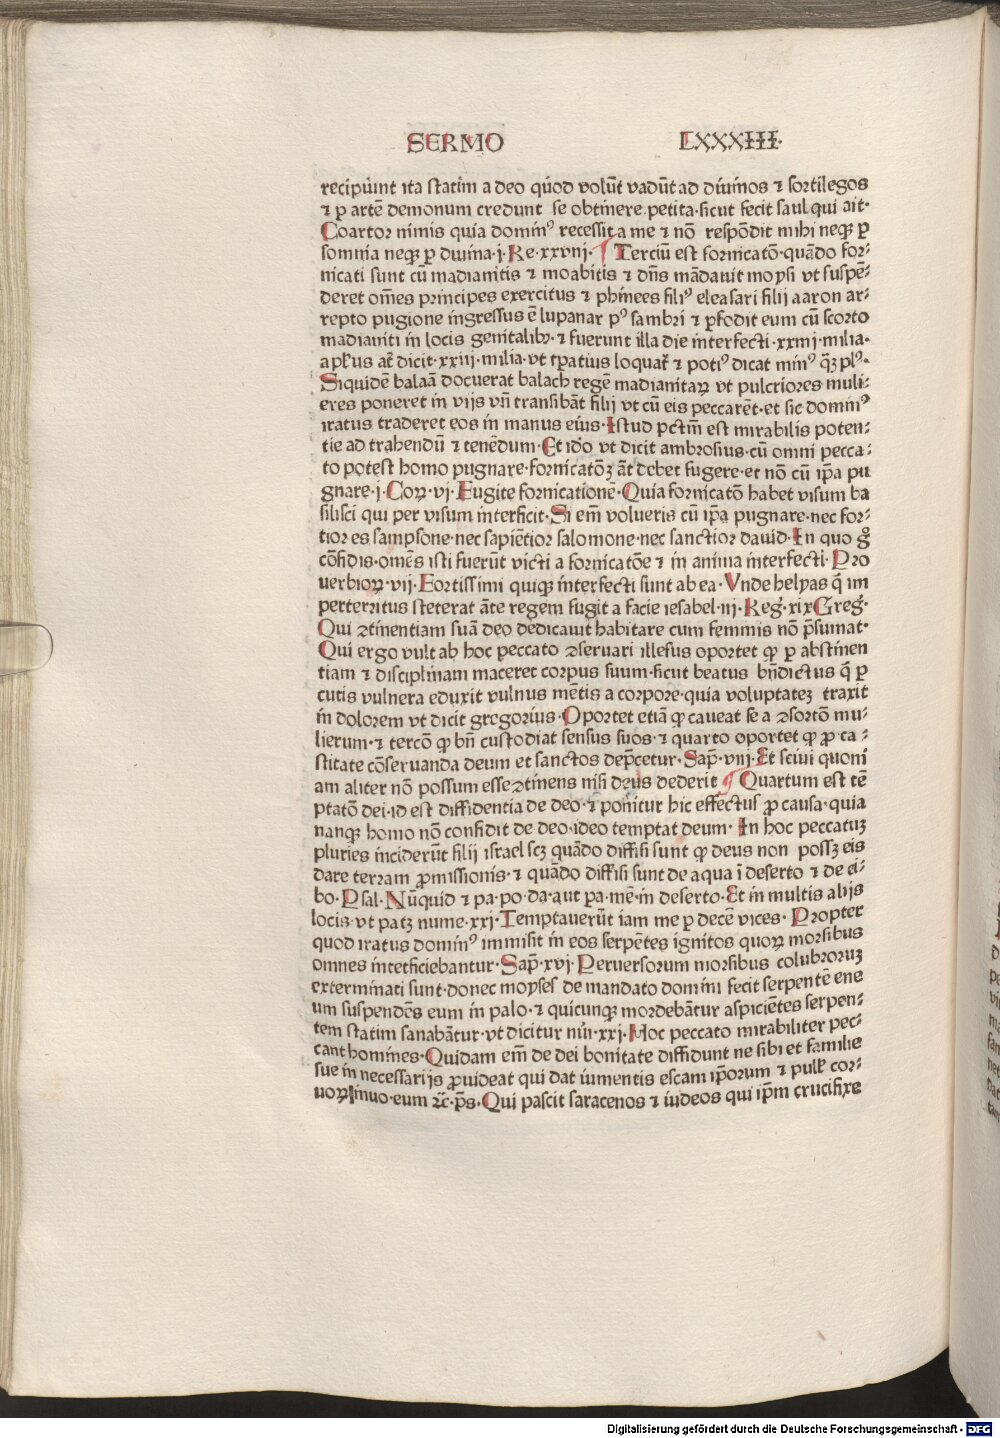 SERMO LXXXIII·
recipiunt ita statim a deo quod volūt vadūt ad diuinos ⁊ sortilegos
⁊ ꝑ artē demonum credunt se obtinere petita·sicut fecit saul qui ait·
Coartor nimis quia dominꝰ recessit a me ⁊ nō respōdit mihi neqꝫ ꝑ
somnia neqꝫ ꝑ diuina·j·Re·xxvnj·¶ Terciū est fornicatō·quādo for⸗
nicati sunt cū madianitis ⁊ moabitis ⁊ dn̄s mādauit moysi vt suspē⸗
deret om̄es principes exercitus ⁊ phinees filiꝰ eleasari filij aaron ar⸗
repto pugione ingressus ē lupanar pꝰ sambri ⁊ ꝑfodit eum cū scorto
madianiti in locis genitalibꝫ·⁊ fuerunt illa die interfecti·xxmj·milia·
apl̄us at̄ dicit·xxiij·milia·vt tp̄atius loquat᷑ ⁊ potiꝰ dicat minꝰ q̄ꝫ plꝰ·
Siquidē balaā docuerat balach regē madianitaꝝ vt pulcriores muli⸗
eres poneret in vijs vn̄ transibāt filij vt cū eis peccarēt·et sic dominꝰ
iratus traderet eos in manus eius·Istud pctm̄ est mirabilis poten⸗
tie ad trahendū ⁊ tenēdum·Et ido̅ vt dicit ambrosius·cū omni pecca⸗
to potest homo pugnare·fornicatōꝫ āt debet fugere·et nō cū ip̄a pu
gnare·j·Coꝝ·vj·Fugite fornicationē·Quia fornicatō habet visum ba
silisci qui per visum interficit·Si em̄ volueris cū ip̄a pugnare·nec for⸗
tior es sampsone·nec sapiētior salomone·nec sanctior dauid·In quo g̊
cōfidis·omēs isti fuerūt victi a fornicatōe ⁊ in anima interfecti·Pro
uerbioꝝ·vij·Fortissimi quiqꝫ interfecti sunt ab ea·Vnde helyas q̄ im
perterritus steterat āte regem fugit a facie iesabel·iij·Reg̓·xix Greg̓·
Qui ꝯtinentiam suā deo dedicauit habitare cum feminis nō p̄sumat·
Qui ergo vult ab hoc peccato ꝯseruari illesus oportet ꝙ ꝑ abstinen
tiam ⁊ disciplinam maceret corpus suum·sicut beatus bn̄dictus q̄ ꝑ
cutis vulnera eduxit vulnus mētis a corpore·quia voluptateꝫ traxit
in dolorem vt dicit gregorius·Oportet etiā ꝙ caueat se a ꝯsortō mu⸗
lierum·⁊ tercō ꝙ bn̄ custodiat sensus suos·⁊ quarto oportet ꝙ ꝓ ca⸗
stitate cōseruanda deum et sanctos dep̄cetur·Sap̄·vnj·Et sciui quoni
am aliter nō possum esse ꝯtinens nisi deus dederit ¶ Quartum est tē
ptatō dei·id est diffidentia de deo·⁊ ponitur hic effectus ꝓ causa·quia
nanqꝫ homo nō confidit de deo·ideo temptat deum·In hoc peccatuꝫ
pluries inciderūt filij israel scꝫ quādo diffisi sunt ꝙ deus non possꝫ eis
dare terram ꝓmissionis·⁊ quādo diffisi sunt de aqua ī deserto ⁊ de ci⸗
bo·Psal·Nūquid ⁊ pa·po·da·aut pa·mē·in deserto·Et in multis alijs
locis·vt patꝫ nume·xxj·Temptauerūt iam me ꝑ decē vices·Propter
quod iratus dominꝰ immisit in eos serpētes ignitos quoꝝ morsibus
omnes inteficiebantur·Sap̄·xvj·Peruersorum morsibus colubroruꝫ
exterminati sunt·donec moyses de mandato domini fecit serpentē ene
um suspendēs eum in palo·⁊ quicunqꝫ mordebātur aspiciētes serpen⸗
tem statim sanabātur·vt dicitur nūi·xxj·Hoc peccato mirabiliter pec⸗
cant homines·Quidam em̄ de dei bonitate diffidunt ne sibi et familie
sue in necessarijs ꝓuideat qui dat iumentis escam ip̄orum ⁊ pull̓ cor⸗
uoꝝ inuo·eum ⁊c̄·p̄s·Qui pascit saracenos ⁊ iudeos qui ip̄m crucifixe
Digitalisierung gefördert durch die Deutsche Forschungsgemeinschaft - DFG